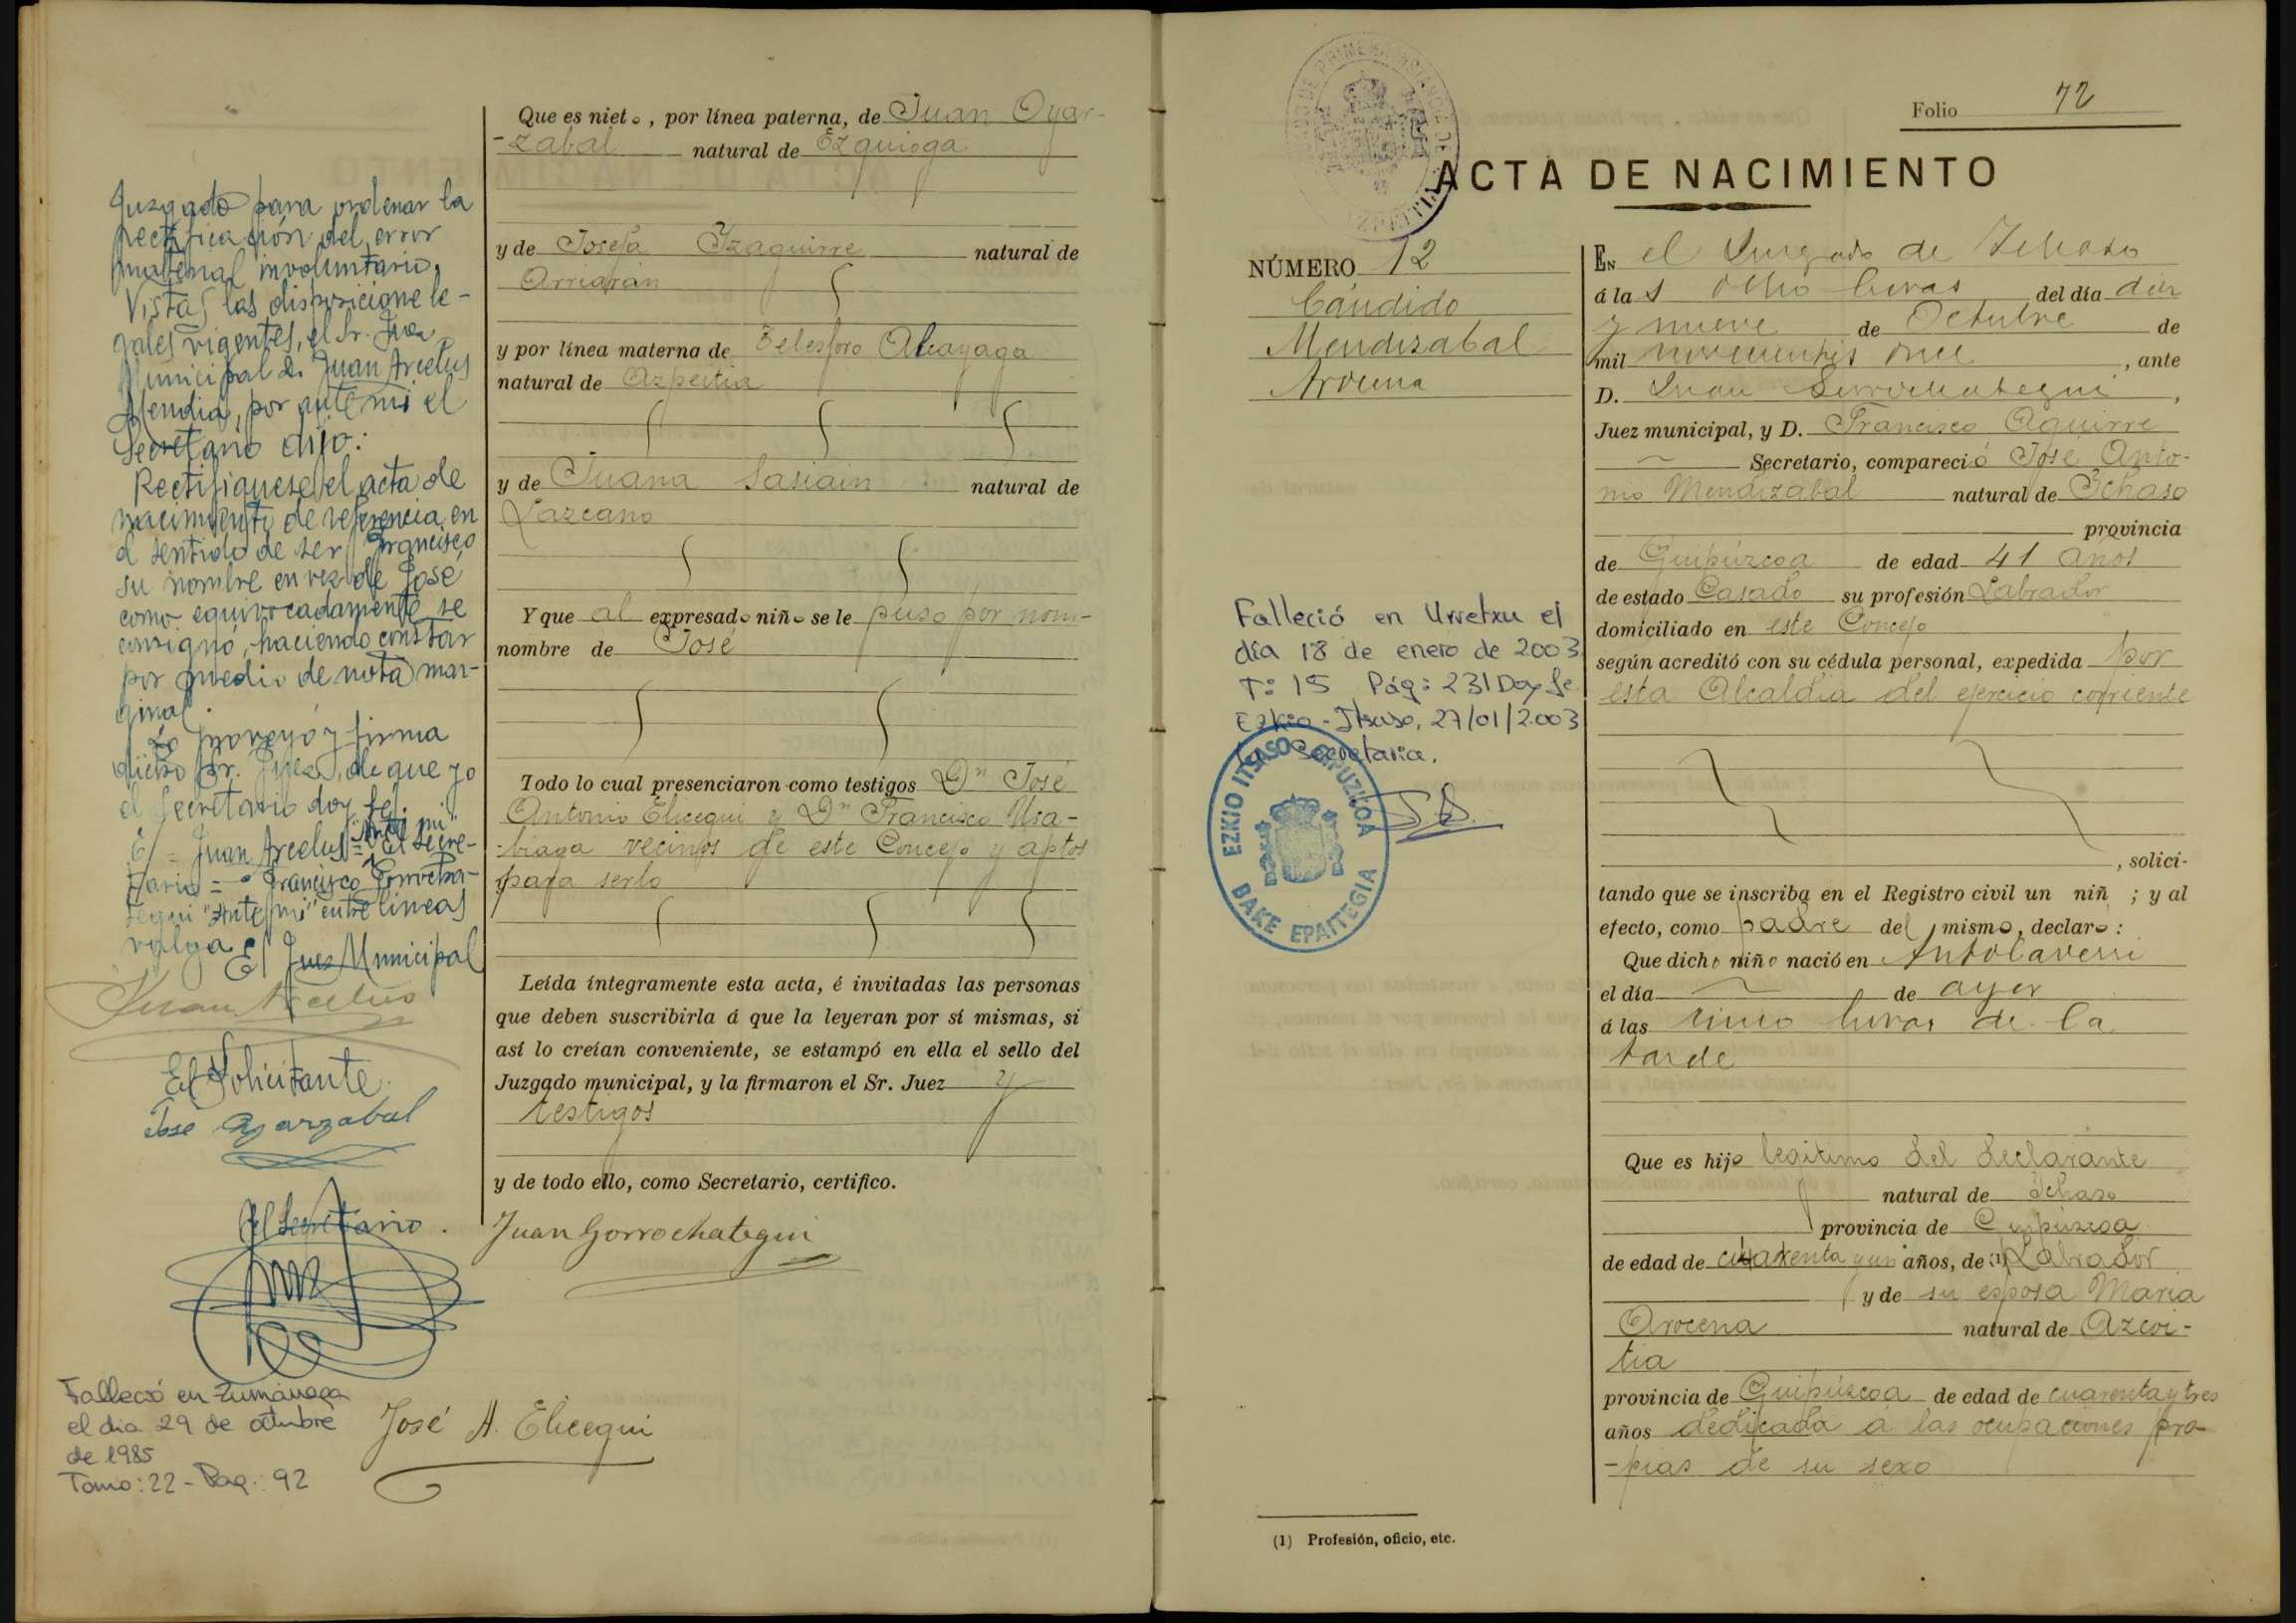 Juzgado para ordenar la
rectificación del error
material involuntario.
Vistas las disposicione le-
gales vigentes, el Sr. Juez
Municipal D. Juan Arcelus
Mendia, por ante mi el
Secretario dijo:
Rectifiquese el acta de
nacimiento de referencia en
el sentido de ser Francisco
su nombre en vez de José
como equivocadamente se
consignó, haciendo constar
por medio de nota mar-
ginal.
Lo proveyó y firma
dicho Sr. Juez, de que yo
el Secretario doy fé.
"Ante mi"
E/ = Juan Arcelus = El Secre-
tario = Francisco Gorrocha-
tegui "Ante mi" entre lineas
valga
El Juez Municipal
Juan Arcelus
El Solicitante
José Oyarzabal
El Secretario.
Falleció en Zumárraga
el dia 29 de octubre
de 1985
Tomo: 22 - Pag.: 92
Que es nieto, por línea paterna, de Juan Oyar-
-zabal natural de Ezquioga
y de Josefa Yzaguirre natural de
Arriarán
y por línea materna de Telesforo Alcayaga
natural de Azpeitia
y de Juana Sasiain natural de
Lazcano
Y que al expresado niño se le puso por nom-
nombre de José
Todo lo cual presenciaron como testigos Dn José
Antonio Elicegui y Dn Francisco Usa-
-biaga vecinos de este Concejo y aptos
para serlo
Leída íntegramente esta acta, é invitadas las personas
que deben suscribirla á que la leyeran por sí mismas, si
así lo creían conveniente, se estampó en ella el sello del
Juzgado municipal, y la firmaron el Sr. Juez y
testigos
y de todo ello, como Secretario, certifico.
Juan Gorrochategui
José A. Elicegui
Folio 72
ACTA DE NACIMIENTO
NÚMERO 12
Cándido
Mendizabal
Arocena
Falleció en Urretxu el
día 18 de enero de 2003
T: 15 Pág: 231 Doy fe
Ezkio-Itsaso, 27/01/2003
La Secretaria.
EZKIO ITSASO GIPUZKOA
BAKE EPAITEGIA
En el Juzgado de Ichaso
á las ocho horas del día diez
y nueve de Octubre de
mil novecientos once, ante
D. Juan Gorrochategui,
Juez municipal, y D. Francisco Aguirre
Secretario, compareció José Anto-
nio Mendizabal natural de Ichaso
provincia
de Guipúzcoa de edad 41 años
de estado Casado su profesión Labrador
domiciliado en este Concejo
según acreditó con su cédula personal, expedida por
esta Alcaldía del ejercicio corriente
, solici-
tando que se inscriba en el Registro civil un niñ ; y al
efecto, como padre del mismo, declaró:
Que dicho niño nació en
el día de ayer
á las cinco horas de la
tarde
Que es hijo legitimo del declarante
natural de Ichaso
provincia de Guipúzcoa
de edad de cuarenta y un años, de (1) Labrador
y de su esposa Maria
Arocena natural de Azcoi-
tia
provincia de Guipúzcoa de edad de cuarenta y tres
años dedicada a las ocupaciones pro-
-pias de su sexo
(1) Profesión, oficio, etc.